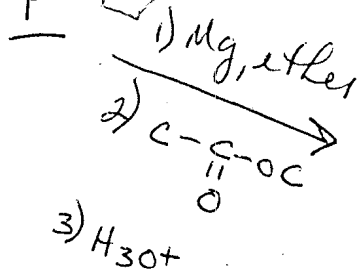 1) Mg, ether
2) C-C-OC
||
O
3) H3O+